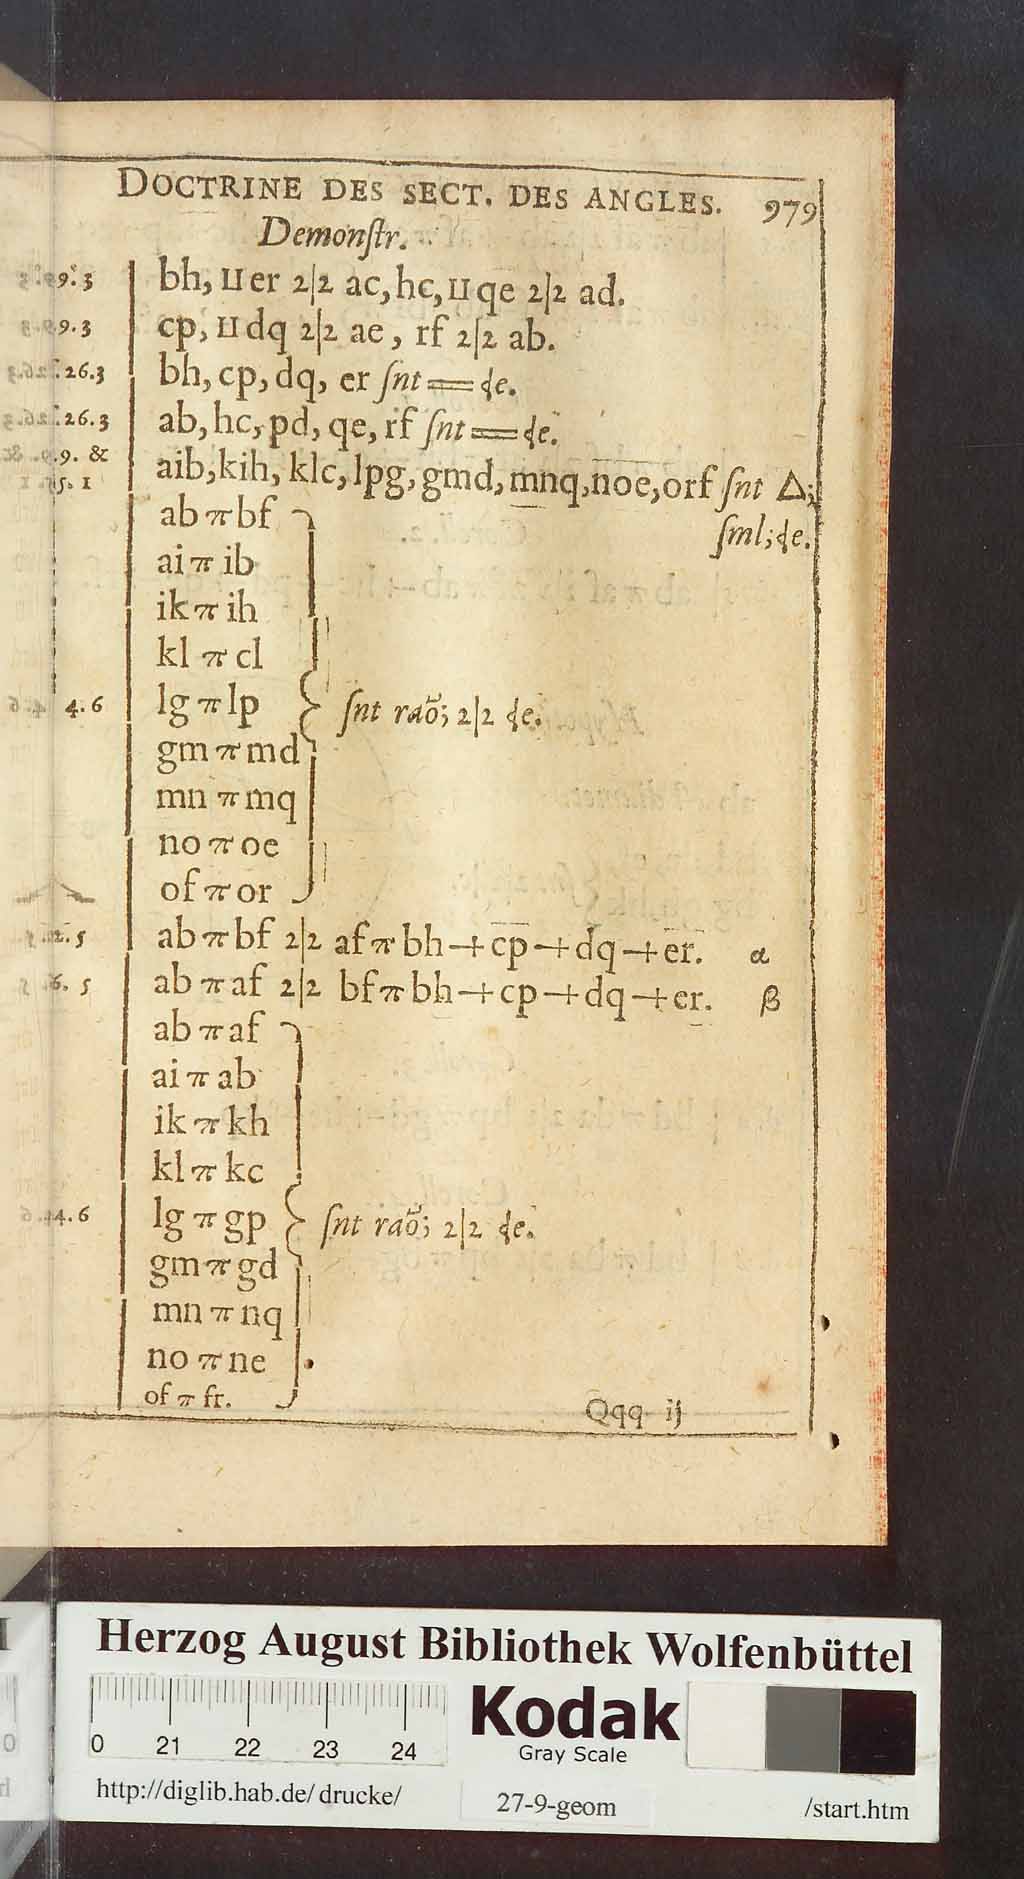 DOCTRINE DES SECT. DES ANGLES. 979
Demonſtr.
9.3 bh, II er 2|2 ac, hc, II qe 2|2 ad.
9.3 cp, II dq 2|2 ae, rf 2|2 ab.
26.3 bh, cp, dq, er ſnt = ɖe.
26.3 ab, hc, pd, qe, rf ſnt = ɖe.
9. & aib, kih, klc, lpg, gmd, mnq, noe, orf ſnt Δ;
5. 1 ſml; ɖe.
ab π bf
ai π ib
ik π ih
kl π cl
4.6 lg π lp ſnt raõ; 2|2 ɖe.
gm π md
mn π mq
no π oe
of π or
12.5 ab π bf 2|2 af π bh + cp + dq + er. α
6. 5 ab π af 2|2 bf π bh + cp + dq + er. β
ab π af
ai π ab
ik π kh
kl π kc
4.6 lg π gp ſnt raõ; 2|2 ɖe.
gm π gd
mn π nq
no π ne
of π fr.
Qqq ij
Herzog August Bibliothek Wolfenbüttel
0 21 22 23 24
Kodak
Gray Scale
http://diglib.hab.de/drucke/ 27-9-geom /start.htm